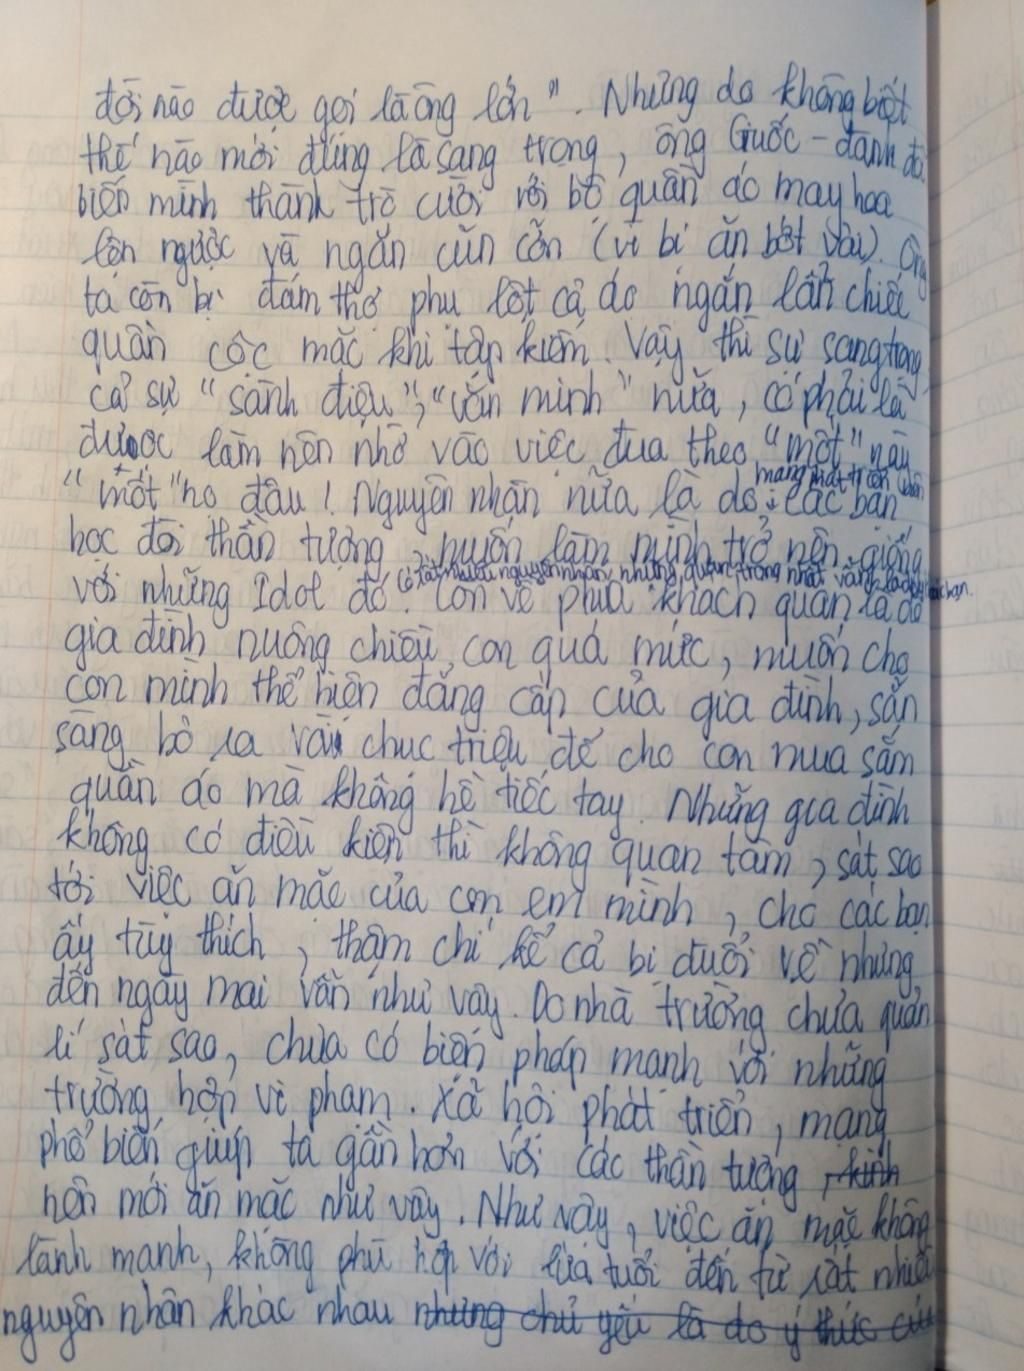 đời nào được gọi là ông lớn". Nhưng do không biết
thế nào mới đúng là sang trọng, ông Guốc-đanh đã
biến mình thành trò cười với bộ quần áo may hoa
lộn ngược và ngắn cũn cỡn (vì bị ăn bớt vải). Ông
ta còn bị đám thợ phụ lột cả áo ngắn lẫn chiếc
quần cộc mặc khi tập kiếm. Vậy thì sự sang trọng
cả sự "sành điệu", "văn minh" nữa, có phải là
được làm nên nhờ vào việc đua theo "mốt" này
"mốt" nọ đâu! Nguyên nhân nữa là do mạng phát triển, các bạn
học đòi thần tượng, muốn làm mình trở nên giống
với những Idol đó. Có rất nhiều nguyên nhân nhưng quan trọng nhất vẫn là do các bạn.
Còn về phía khách quan là do
gia đình nuông chiều con quá mức, muốn cho
con mình thể hiện đẳng cấp của gia đình, sẵn
sàng bỏ ra vài chục triệu để cho con mua sắm
quần áo mà không hề tiếc tay. Những gia đình
không có điều kiện thì không quan tâm, sát sao
tới việc ăn mặc của con em mình, cho các bạn
ấy tùy thích, thậm chí kể cả bị đuổi về nhưng
đến ngày mai vẫn như vậy. Do nhà trường chưa quản
lí sát sao, chưa có biện pháp mạnh với những
trường hợp vi phạm. Xã hội phát triển, mạng
phổ biến giúp ta gần hơn với các thần tượng, kinh
nên mới ăn mặc như vậy. Như vậy, việc ăn mặc không
lành mạnh, không phù hợp với lứa tuổi đến từ rất nhiều
nguyên nhân khác nhau nhưng chủ yếu là do ý thức của